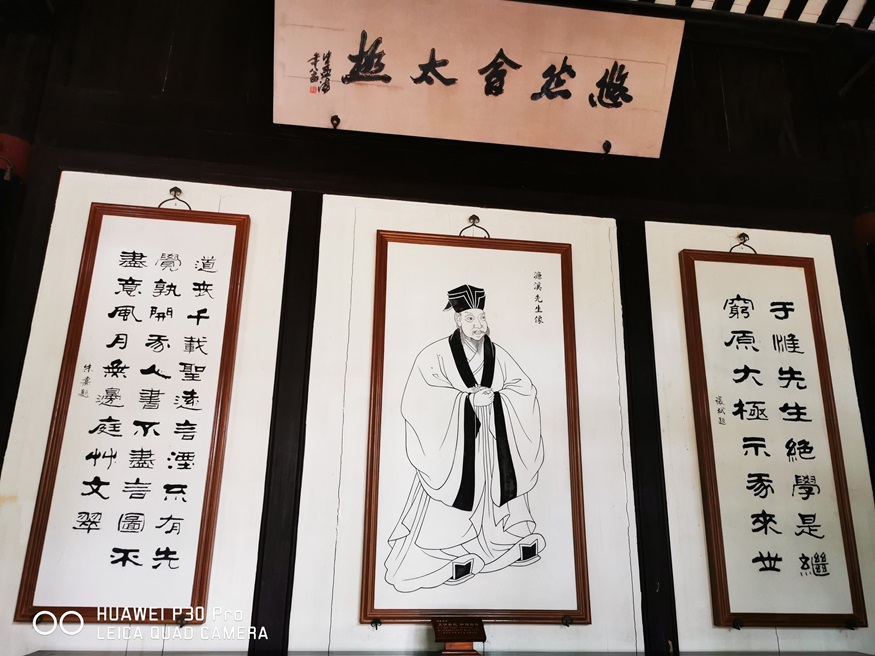 悠然會太極
道喪千載聖遠言湮不有先
覺孰開我人書不盡言圖不
盡意風月無邊庭艸交翠
朱熹題
濂溪先生像
于惟先生絕學是繼
窮原大極示我來世
張栻題
HUAWEI P30 Pro
LEICA QUAD CAMERA